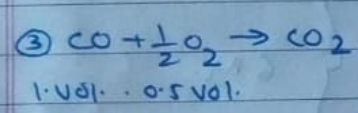 ③ CO + 1/2 O₂ → CO₂
1. vol. . 0.5 vol.